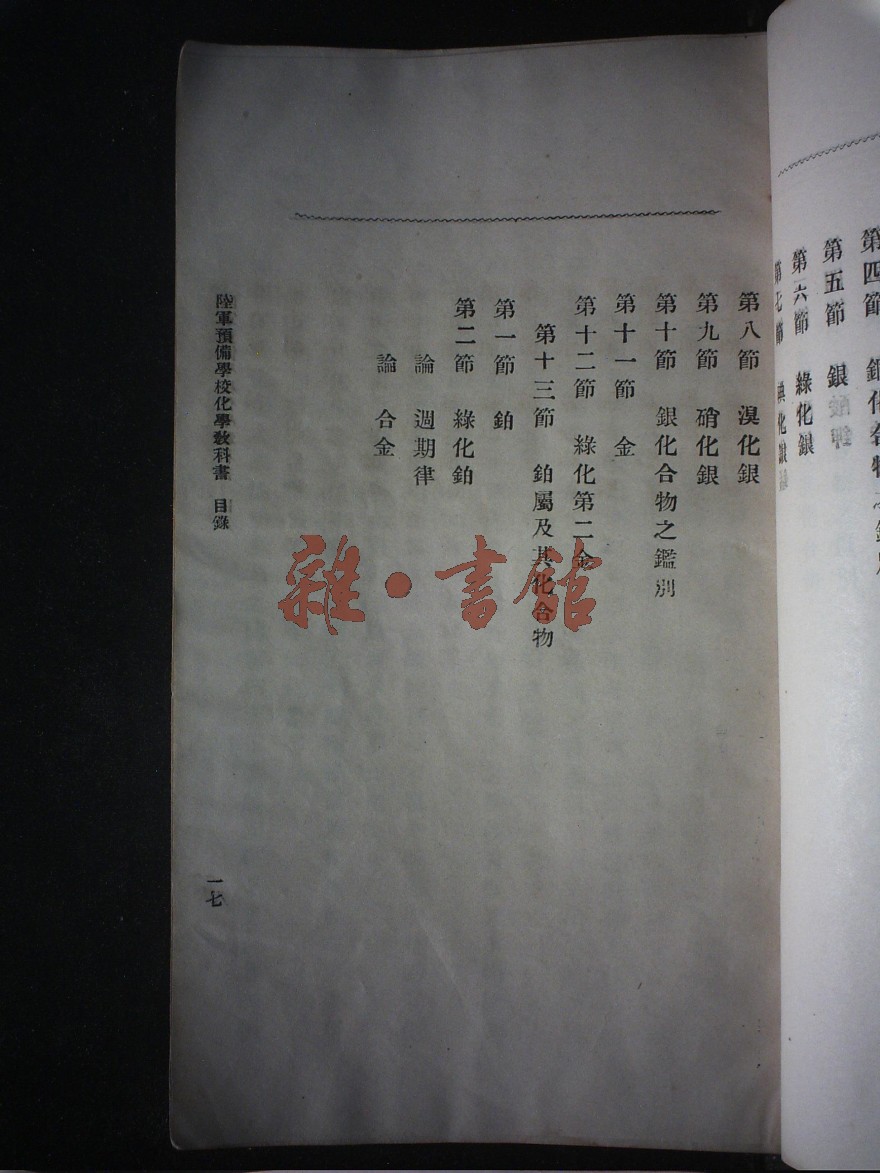 第四節
第五節 銀
第六節 綠化銀
第七節
第八節 溴化銀
第九節 硝化銀
第十節 銀化合物之鑑別
第十一節 金
第十二節 綠化第二金
第十三節 鉑屬及其化合物
第一節 鉑
第二節 綠化鉑
論 週期律
論 合金
陸軍預備學校化學敎科書 目錄
一七
雜·書館